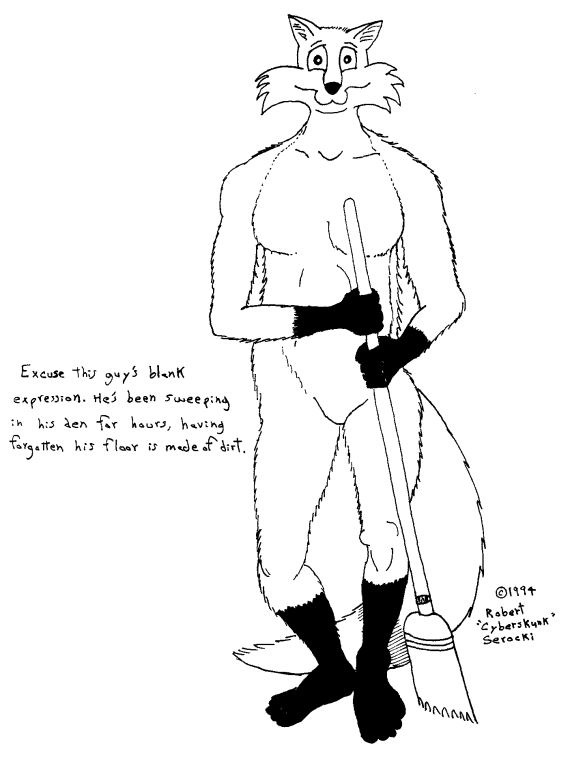 Excuse this guy's blank
expression. He's been sweeping
in his den for hours, having
forgotten his floor is made of dirt.
©1994
Robert
"Cyberskunk"
Serocki